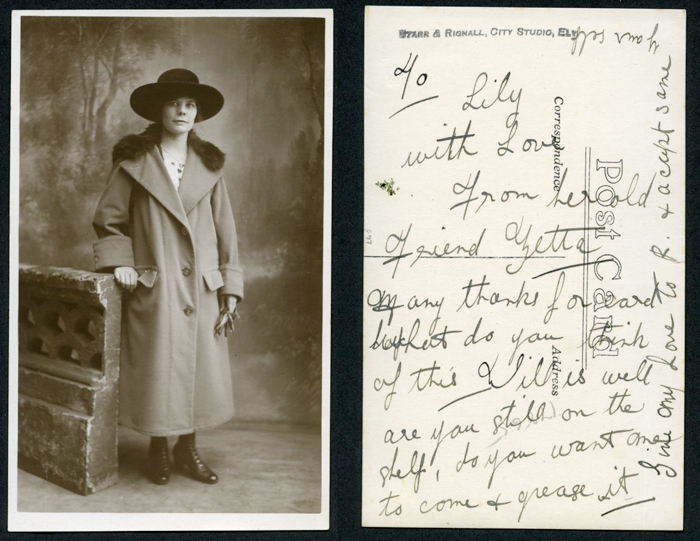 STARR & RIGNALL, CITY STUDIO, ELY
To
Lily
with Love
From her old
Friend Zetta
Many thanks for card
what do you think
of this Will is well
are you still on the
shelf, do you want me
to come & grease it
Give my love to R. & accept same
your self
Correspondence
Post Card
Address